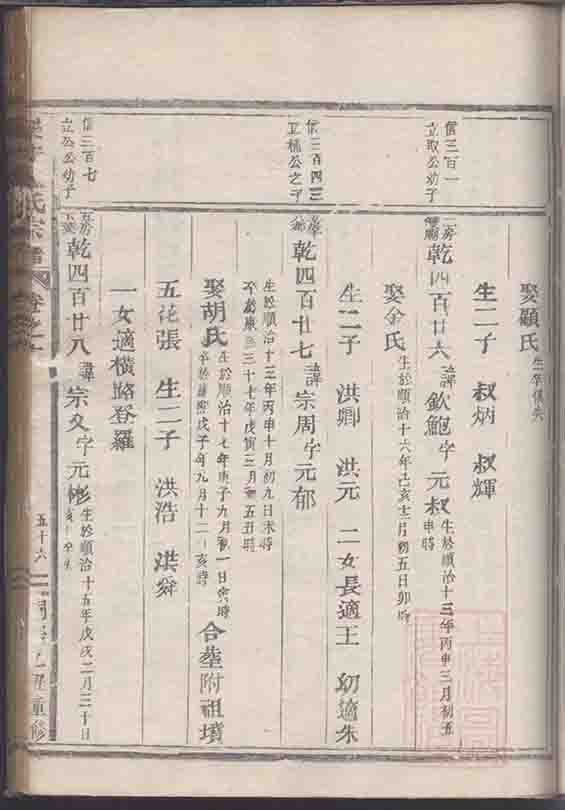 娶顧氏 生卒俱失
生二子 叔炳 叔輝
信三百一
立取公幼子
乾四百廿六 諱欽鮑字元叔 生於順治十三年丙申三月初五
申時
娶余氏 生於順治十六年己亥十二月初五日卯時
生二子 洪卿 洪元 二女長適王 幼適朱
信三百四三
公之子
乾四百廿七 諱宗周字元郁
生於順治十三年丙申十月初九日未時
康熙三十七年戊寅三月初五丑時
娶胡氏 生於順治十七年庚子九月初一日寅時
戊子年九月十二亥時
合塟附祖墳
五花張 生二子 洪浩 洪舜
一女適橫路登羅
信三百七
立公公幼子
乾四百廿八 諱宗 字元彬 生於順治十五年戊戌二月三十日
氏宗譜 卷之
五十六
重修